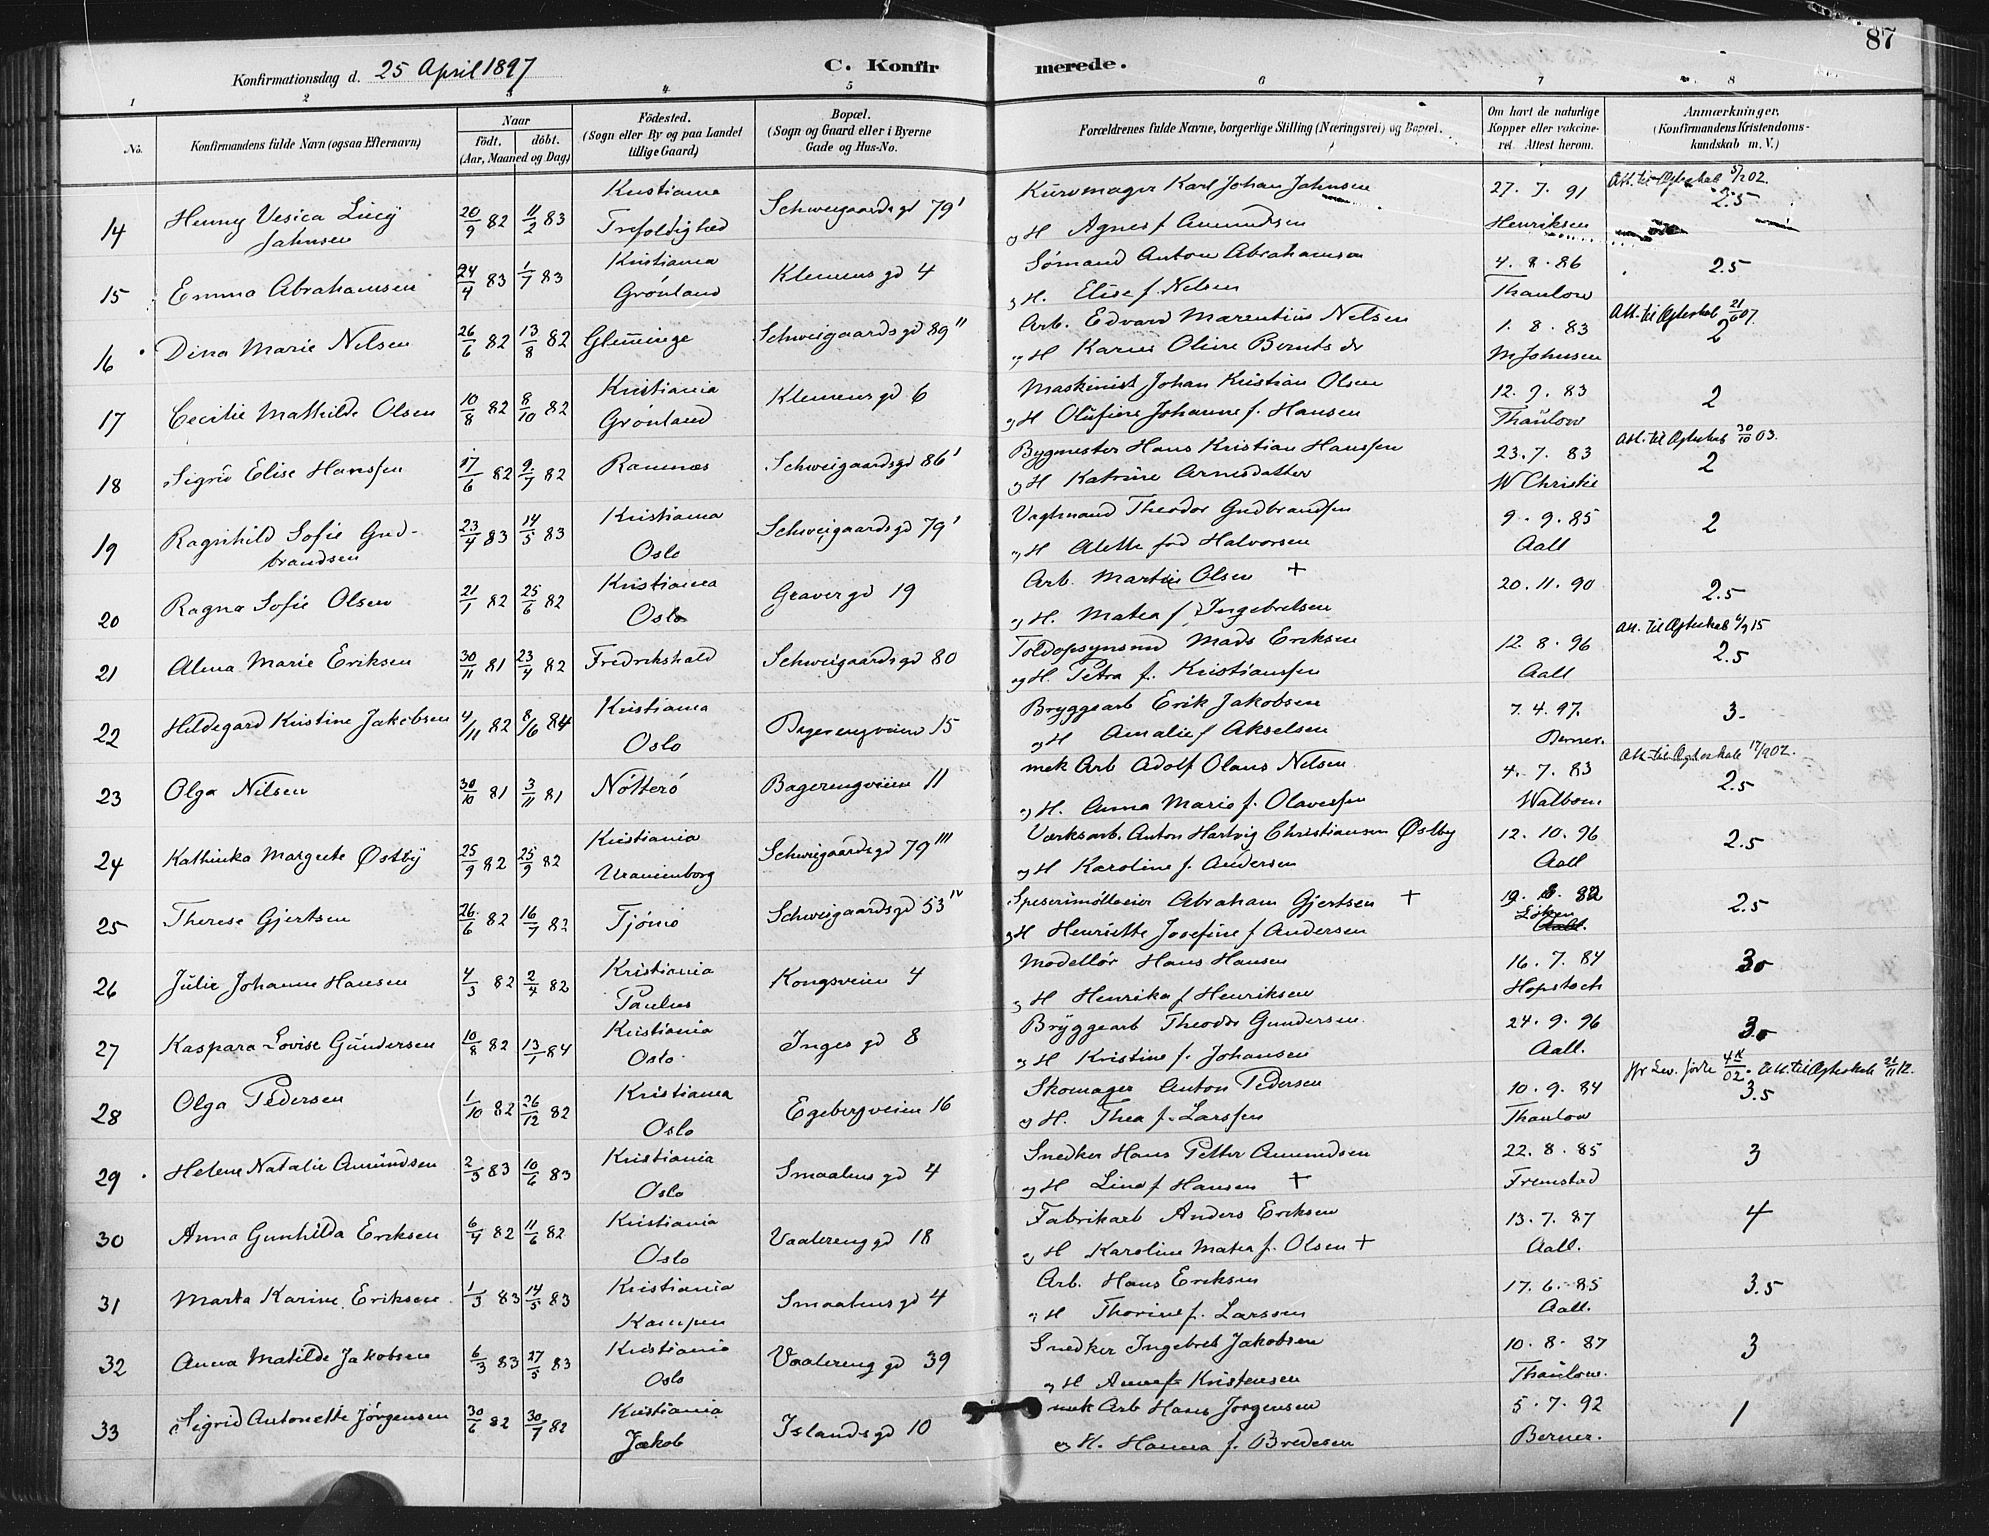 87
Konfirmationsdag d. 25 April 1897
C. Konfirmerede.
1 2 3 4 5 6 7 8
No.
Konfirmandens fulde Navn (ogsaa Efternavn)
Naar
födt. döbt.
(Aar, Maaned og Dag)
Födested.
(Sogn eller By og paa Landet
tillige Gaard)
Bopæl.
(Sogn og Gaard eller i Byerne
Gade og Hus-No.
Forældrenes fulde Navne, borgerlige Stilling (Næringsvei) og Bopæl.
Om havt de naturlige
Kopper eller vakcine-
ret. Attest herom.
Anmærkninger.
(Konfirmandens Kristendoms-
kundskab m. V.)
14 Henny Vesica Lucy 20/9 82 11/2 83 Kristiania Schweigaardsgd 79' Kurvmager Karl Johan Jahnsen 27. 7. 91 Att. til Ægteskab 5/7 02. 2.5
Jahnsen Trefoldighed og H Agnes f Amundsen Henriksen
15 Emma Abrahamsen 24/4 83 1/7 83 Kristiania Klemensgd 4 Sömand Anton Abrahamsen 4. 8. 86 2.5
Grönland og H. Elise f. Nelsen Thaulow
16 Dina Marie Nilsen 26/6 82 13/8 82 Glemminge Schweigaardsgd 89" Arb. Edvard Marentius Nilsen 1. 8. 83 Att. til Ægteskab 21/6 07. 2
og H Karen Oline Berntsdr M Johnsen
17 Cecilie Mathilde Olsen 10/8 82 8/10 82 Kristiania Klemensgd 6 Maskinist Johan Kristian Olsen 12. 9. 83 2
Grönland og H Olufine Johanne f. Hansen Thaulow
18 Sigrid Elise Hanssen 17/6 82 9/7 82 Ramnæs Schweigaardsgd 86' Bygmester Hans Kristian Hanssen 23. 7. 83 Att. til Ægteskab 30/10 03. 2
og H Katrine Arnesdatter W Christie
19 Ragnhild Sofie Gud- 23/4 83 14/5 83 Kristiania Schweigaardsgd 79' Vagtmand Theodor Gudbrandsen 9. 9. 85 2
brandsen Oslo og H Alette född Halvorsen Aall
20 Ragna Sofie Olsen 21/1 82 25/6 82 Kristiania Gravergd 19 Arb. Martin Olsen + 20. 11. 90 2.5
Oslo og H. Matea f. Ingebretsen
21 Alma Marie Eriksen 30/11 81 23/4 82 Fredrikshald Schweigaardsgd 80 Toldopsynsmd Mads Eriksen 12. 8. 96 Att. til Ægteskab 6/9 15 2.5
og H. Petra f. Kristianssen Aall
22 Hildegard Kristine Jakobsen 4/11 82 8/6 84 Kristiania Bagerengveien 15 Bryggearb Erik Jakobsen 7. 4. 97. 3.
Oslo og H Amalie f Akselsen Berner.
23 Olga Nilsen 30/10 81 3/11 81 Nötterö Bagerengveien 11 mek Arb Adolf Olaus Nilsen 4. 7. 83 Att. til Ægteskab 17/9 02. 2.5
og H. Anna Marie f. Olavessen Walbom.
24 Kathinka Margrete Østby 25/9 82 25/9 82 Kristiania Schweigaardsgd 79''' Værksarb. Anton Hartvig Christiansen Østby 12. 10. 96 2.5
Uranienborg og H Karoline f. Andersen Aall
25 Therese Gjertsen 26/6 82 16/7 82 Tjömö Schweigaardsgd 53 IV Abraham Gjertsen + 19. 82 2.5
og H Henriette Josefine f Andersen Löken Aall.
26 Julie Johanne Hansen 4/3 82 2/4 82 Kristiania Kongsveien 4 Modellör Hans Hansen 16. 7. 84 3
Paulus og H Henrika f Henriksen Hopstock
27 Kaspara Lovise Gundersen 10/8 82 13/1 84 Kristiania Inges gd 8 Bryggearb Theodor Gundersen. 24. 9. 96 3
Oslo og H Kristine f. Johansen Aall.
28 Olga Pedersen 1/10 82 26/12 82 Kristiania Egebergveien 16 Skomager Anton Pedersen 10. 9. 84 Att. til Ægteskab 21/11 12. 3.5
Oslo og H. Thea f. Larssen Thaulow
29 Helene Natalie Amundsen 2/3 83 10/6 83 Kristiania Smaalensgd 4 Snedker Hans Petter Amundsen 22. 8. 85 3
Oslo og H Line f Hansen + Fremstad
30 Anna Gunhilda Eriksen 6/4 82 11/6 82 Kristiania Vaalerenggd 18 Fabrikarb Anders Eriksen 13. 7. 87 4
Oslo og H Karoline Matea f. Olsen + Aall.
31 Marta Karine Eriksen 1/3 83 14/5 83 Kristiania Smaalensgd 4 Arb. Hans Eriksen 17. 6. 85 3.5
Kampen og H Thorine f. Larssen Aall.
32 Anna Matilde Jakobsen 6/3 83 27/5 83 Kristiania Vaalerenggd 39 Snedker Ingebret Jakobsen 10. 8. 87 3
Oslo og H Anne f Kristensen Thaulow.
33 Sigrid Antonette Jörgensen 30/6 82 30/7 82 Kristiania Islandsgd 10 mek Arb Hans Jörgensen 5. 7. 92 1
Jakob og H. Hanna f. Bredesen Berner.